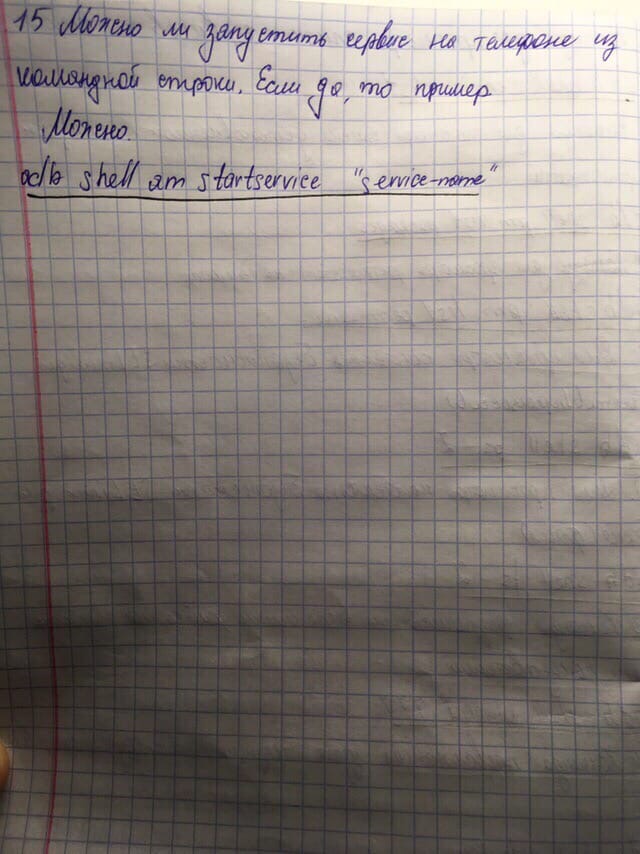 15 Можно ли запустить сервис на телефоне из
командной строки. Если да, то пример
Можно.
adb shell am startservice "service-name"